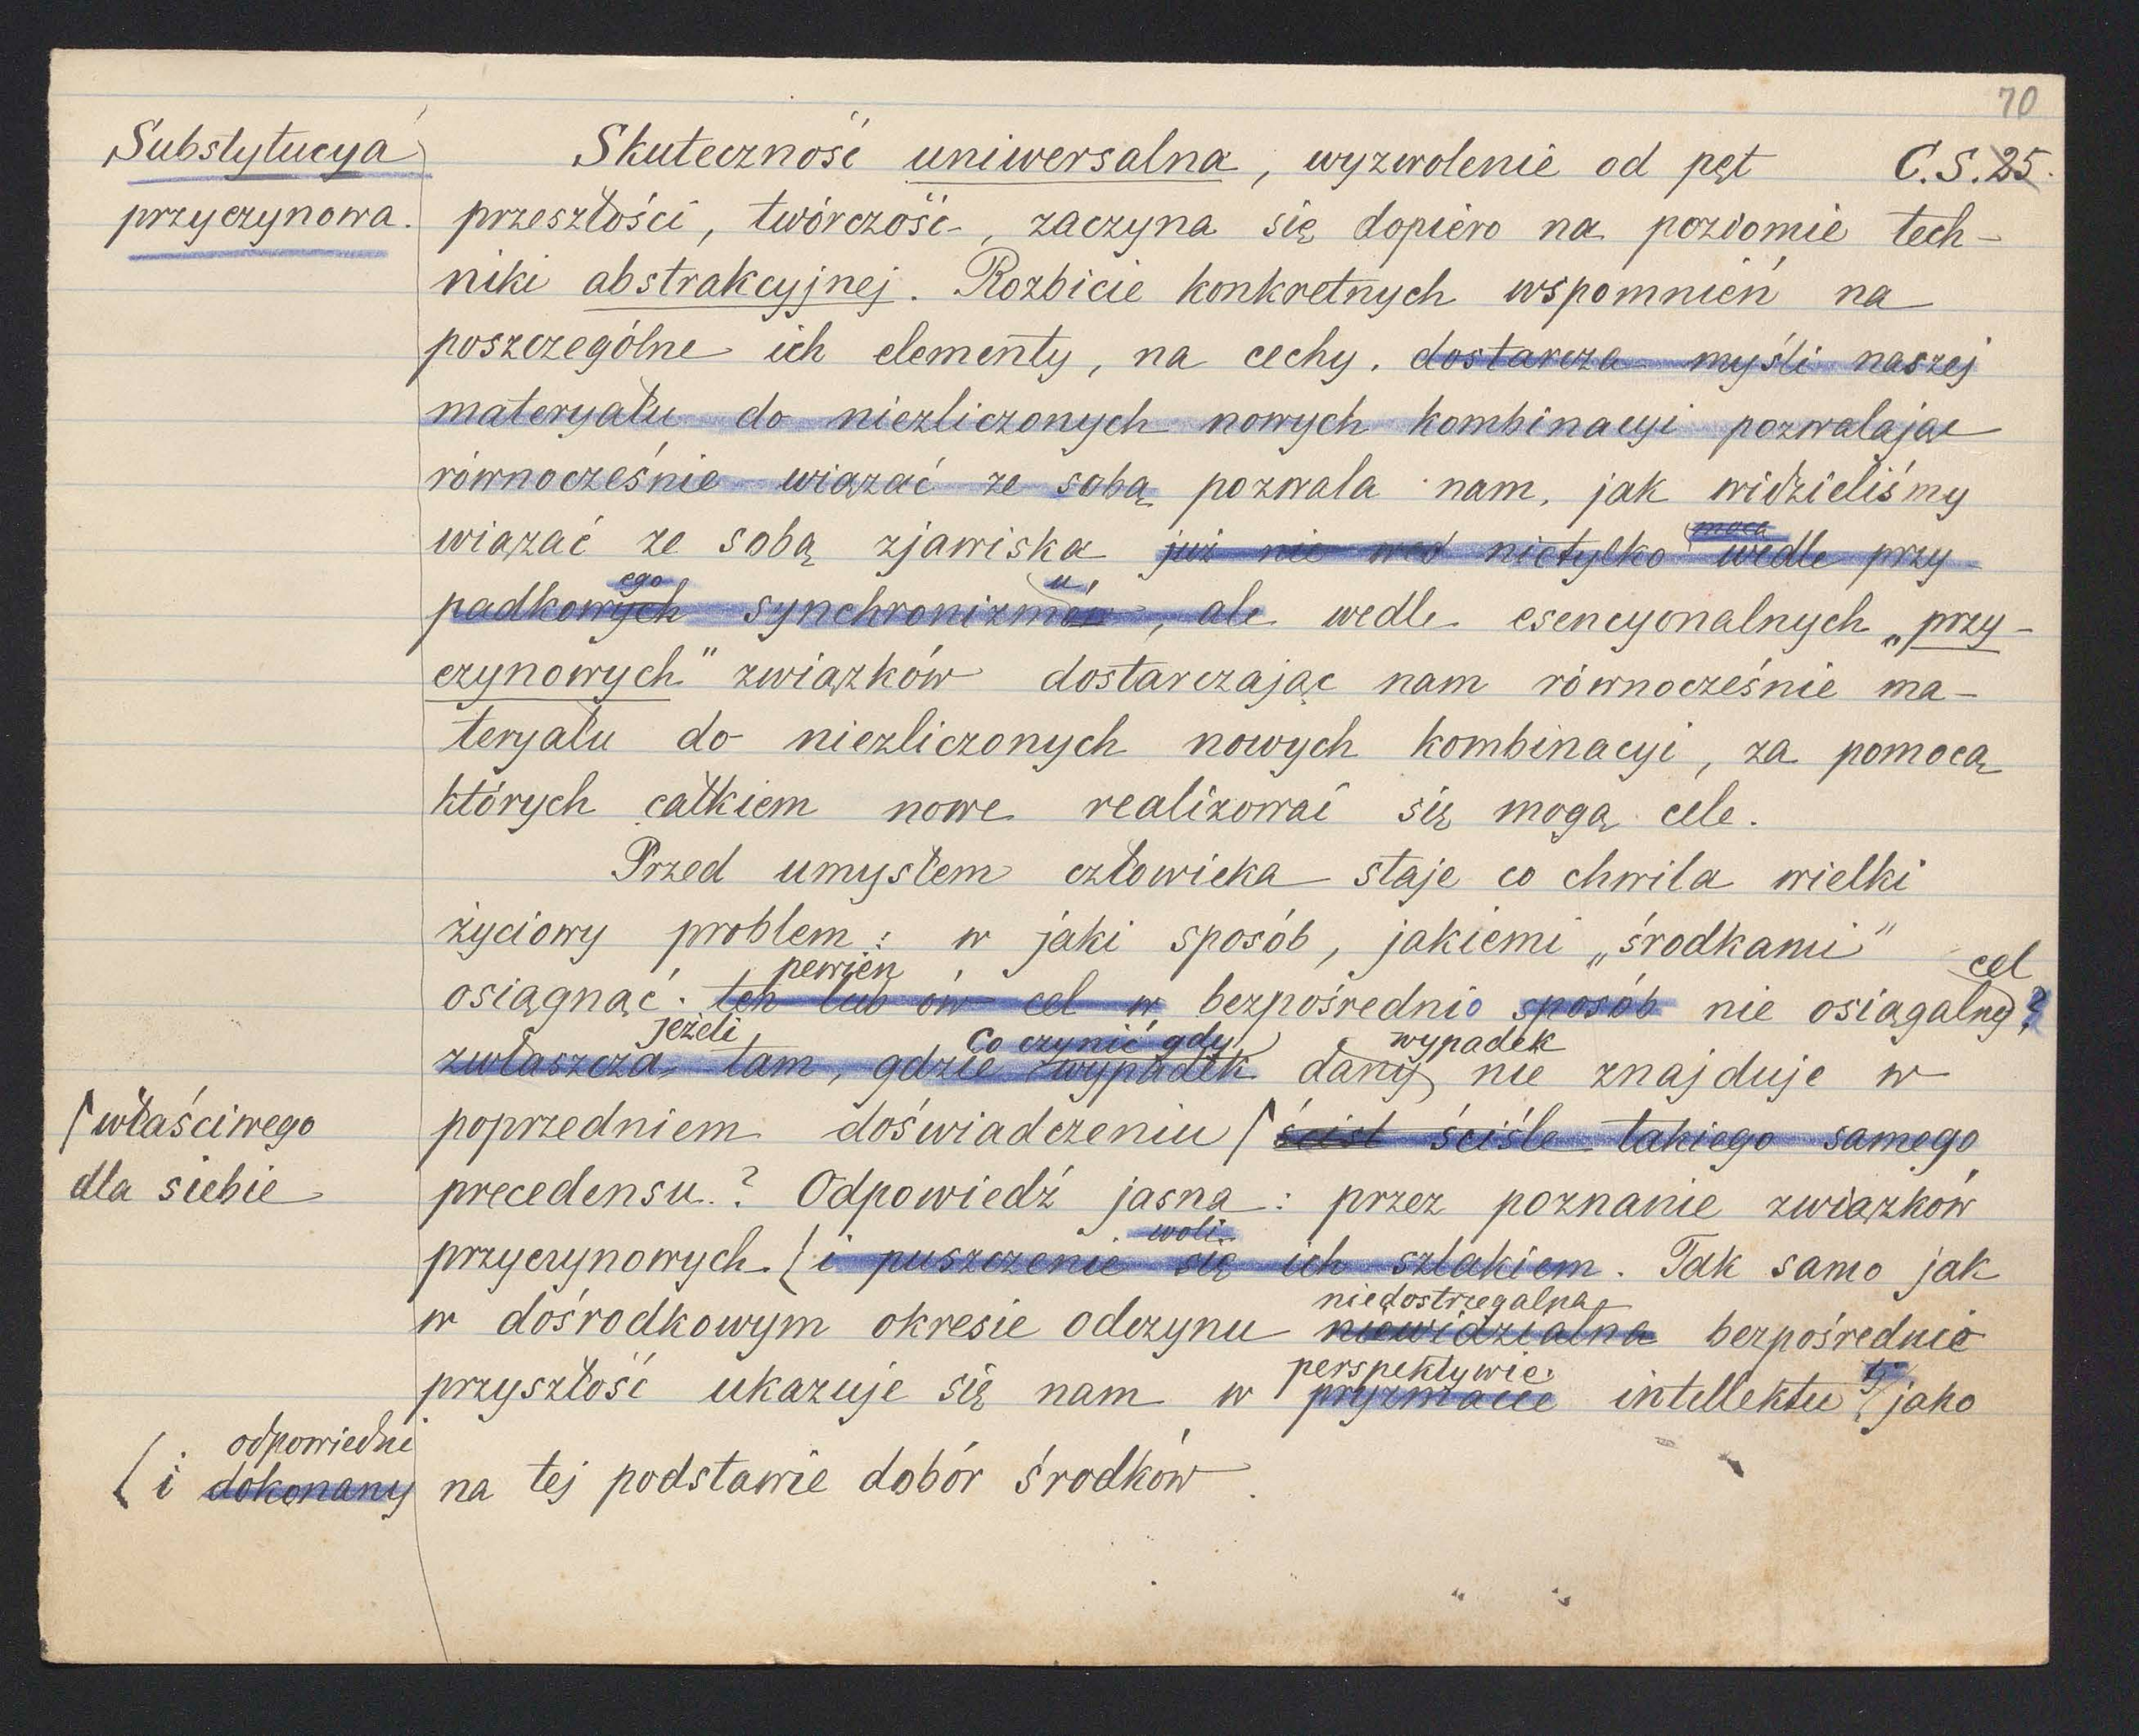 70
Substytucya
przyczynowa.
Skuteczność uniwersalna, wyzwolenie od pęt C.S. 25.
przeszłości, twórczość, zaczyna się dopiero na poziomie tech-
niki abstrakcyjnej. Rozbicie konkretnych wspomnień na
poszczególne ich elementy, na cechy. dostarcza myśli naszej
materyału do niezliczonych nowych kombinacyi pozwalając
równocześnie wiązać ze sobą pozwala nam, jak widzieliśmy
mocą
wiązać ze sobą zjawiska już nie wed nietylko wedle przy-
ego u,
padkowych synchronizmów, ale wedle esencyonalnych „przy-
czynowych" związków dostarczając nam równocześnie ma-
teryału do niezliczonych nowych kombinacyi, za pomocą
których całkiem nowe realizować się mogą cele.
Przed umysłem człowieka staje co chwila wielki
życiowy problem: w jaki sposób, jakiemi „środkami"
pewien cel
osiągnąć. ten lub ów cel w bezpośrednio sposób nie osiągalny?
jeżeli Co czynić gdy wypadek
zwłaszcza tam, gdzie wypadek dany nie znajduje w
poprzedniem doświadczeniu / ścisł ściśle takiego samego
/ właściwego
dla siebie
precedensu.? Odpowiedź jasna: przez poznanie związków
woli
przyczynowych. (i puszczenie się ich szlakiem. Tak samo jak
niedostrzegalna
w dośrodkowym okresie odczynu niewidzialna bezpośrednio
perspektywie
przyszłość ukazuje się nam w pryzmacie intellektu, jako
odpowiedni
(i dokonany na tej podstawie dobór środków.